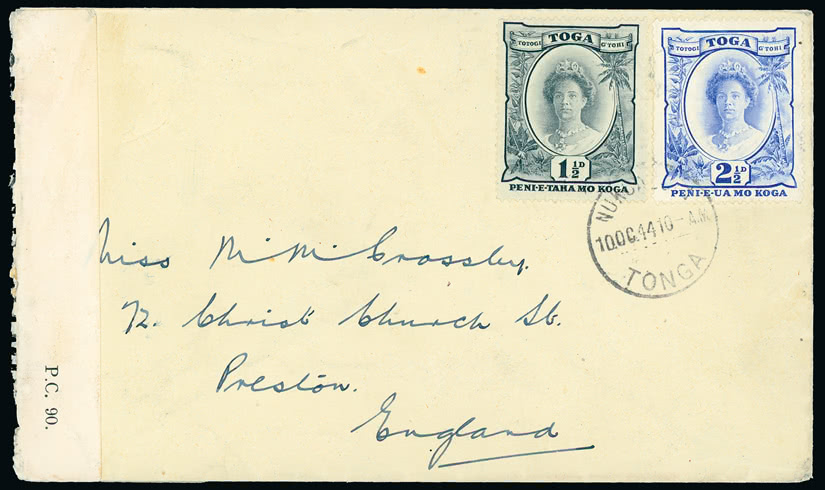 TOGA
TOTOGI G'TOHI
1½D
PENI-E-TAHA MO KOGA
TOGA
TOTOGI G'TOHI
2½D
PENI-E-UA MO KOGA
10 OC 44 10- A.M.
TONGA
Miss M. M. Crossley.
72. Christ Church St.
Preston.
England
P.C. 90.